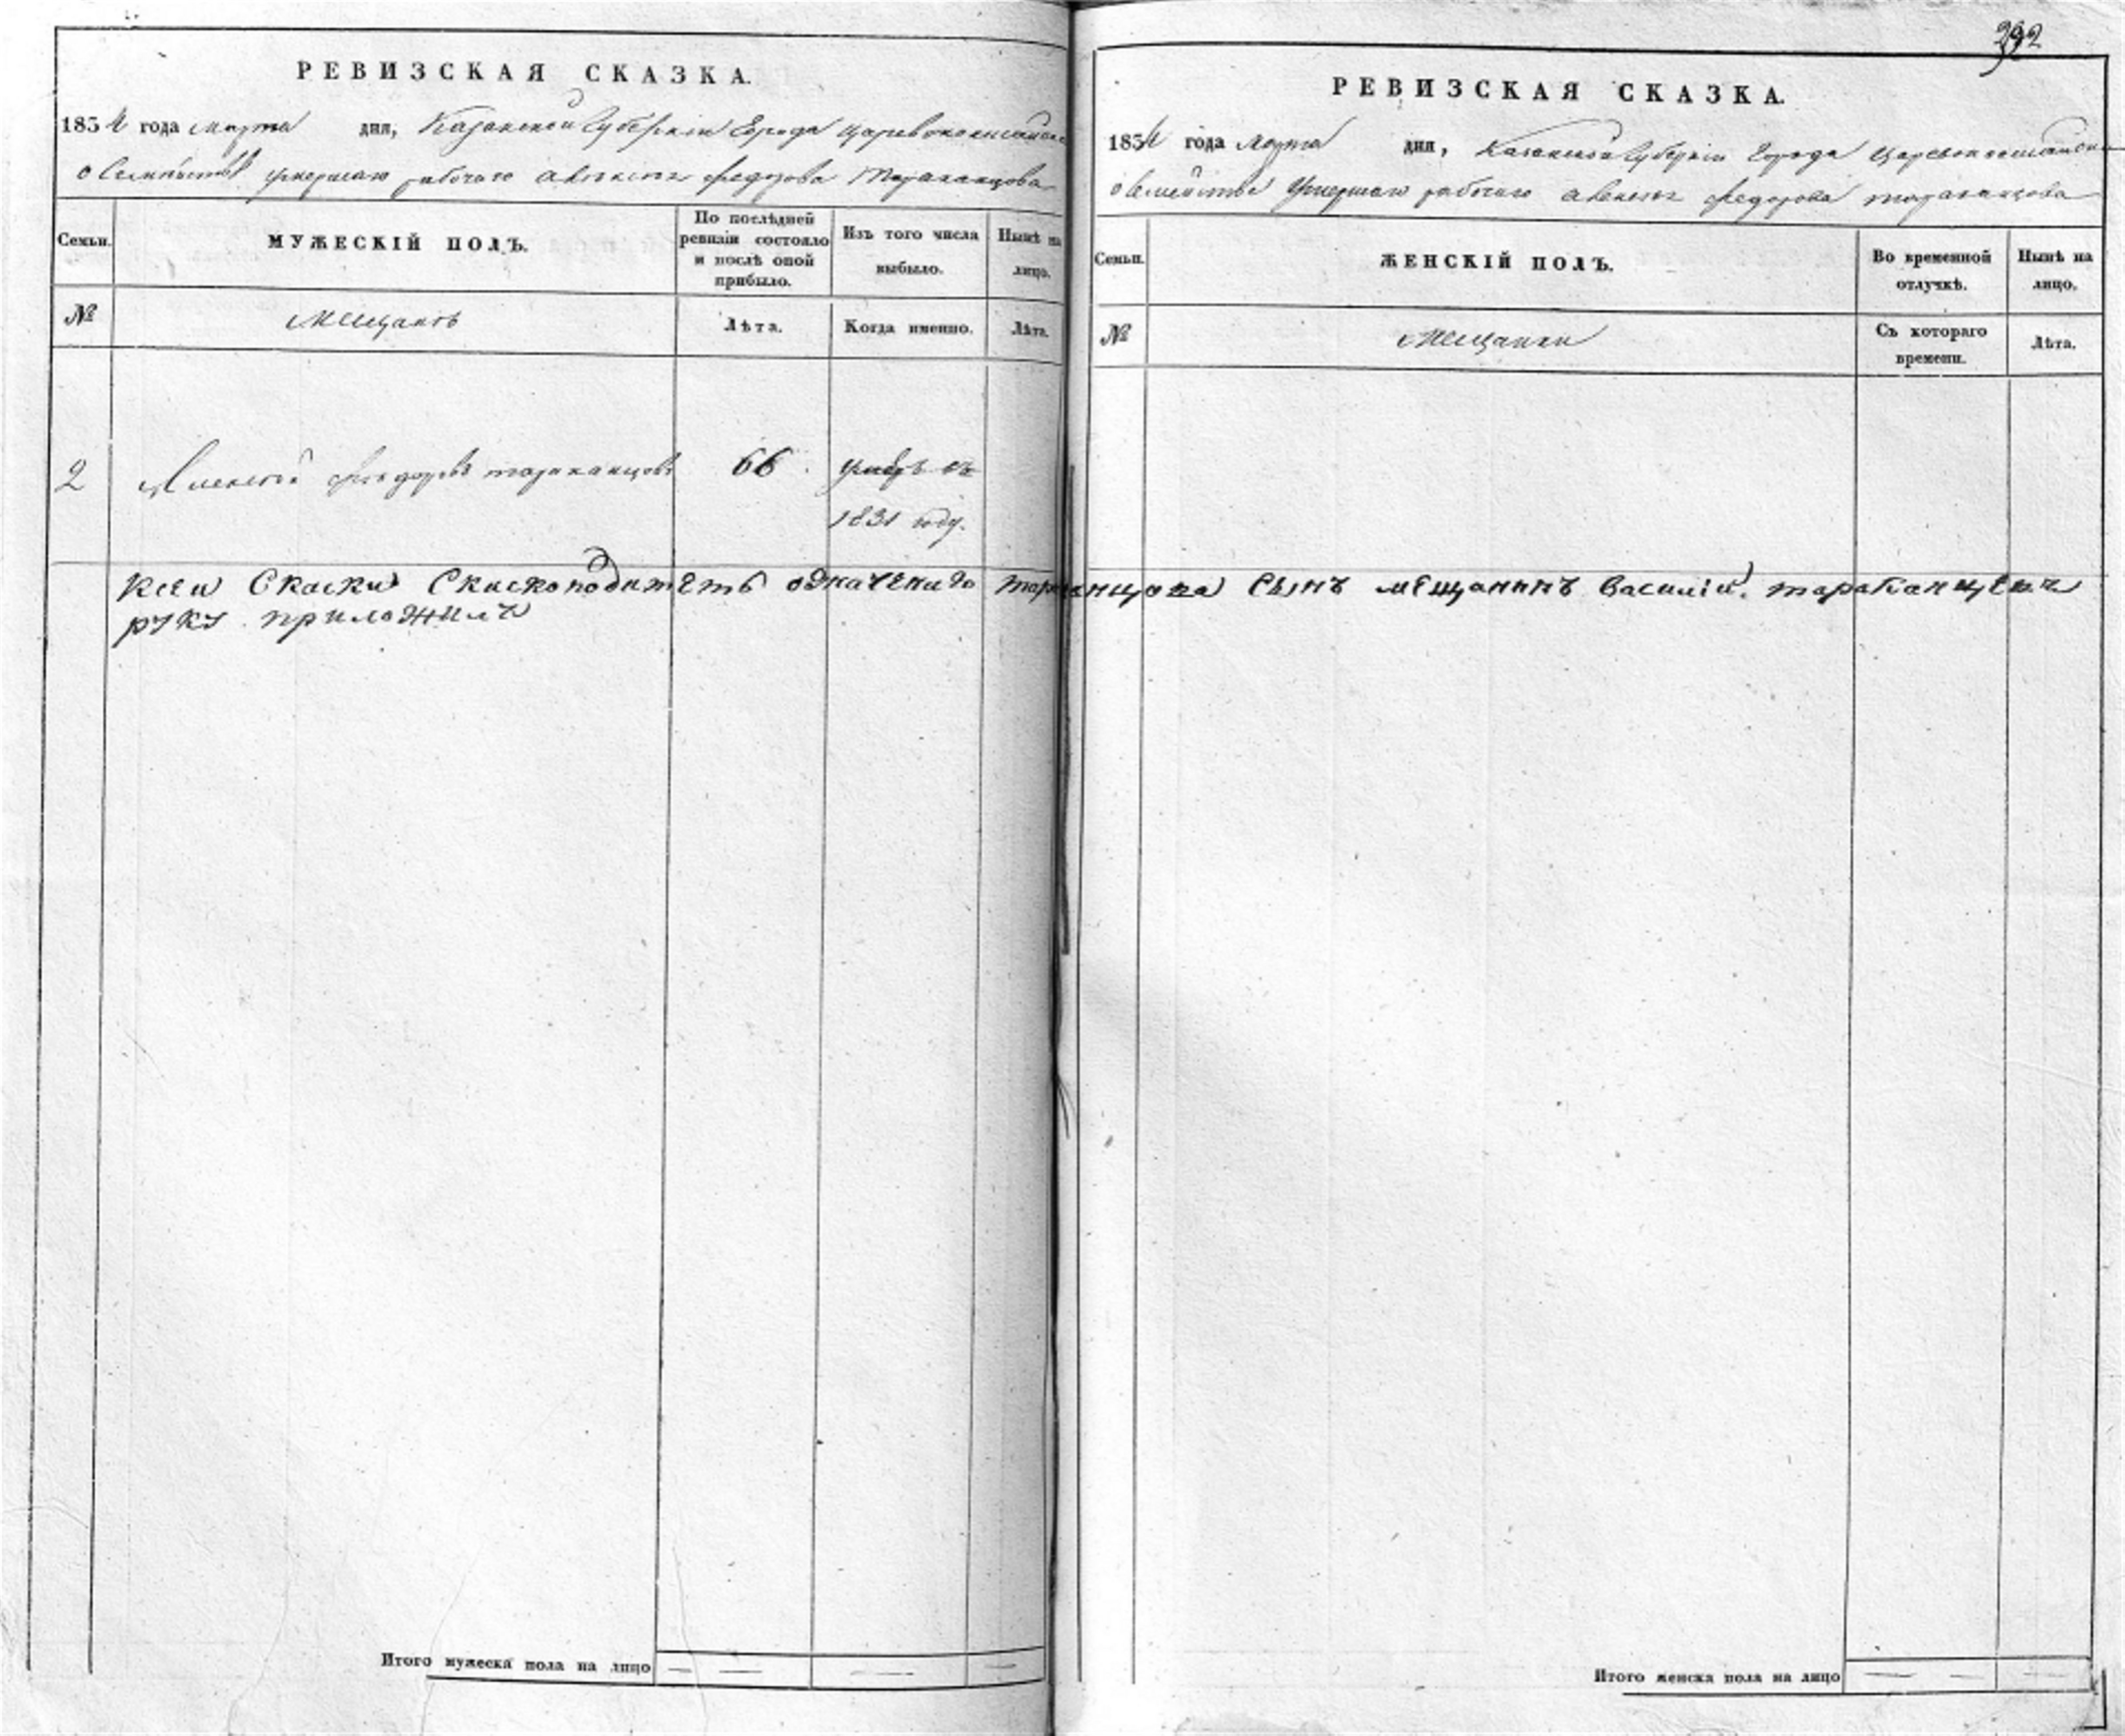 РЕВИЗСКАЯ СКАЗКА.
1834 года марта дня, Казанской Губерніи Города Царевококшайска
о Семействѣ умершаго рабочаго Алексея Федорова Тараканцова
Семьи. МУЖЕСКІЙ ПОЛЪ. По послѣдней ревизіи состояло и послѣ оной прибыло. Изъ того числа выбыло. Нынѣ на лицо.
№ Мещанъ Лѣта. Когда именно. Лѣта.
2 Алексей Федоровъ тараканцовъ 66 умеръ въ
1831 году.
Ксеи Скаски тараканцова Сынъ мещанинъ Василій тараканцевъ
руку приложилъ
Итого мужеска пола на лицо — — —
392
РЕВИЗСКАЯ СКАЗКА.
1834 года Марта дня, Казанской Губерніи Города Царевококшайска
о Семействе Умершаго рабочаго алексея федорова тараканцова
Семьи. ЖЕНСКІЙ ПОЛЪ. Во временной отлучкѣ. Нынѣ на лицо.
№ Мещанки Съ котораго времени. Лѣта.
Итого женска пола на лицо — — —